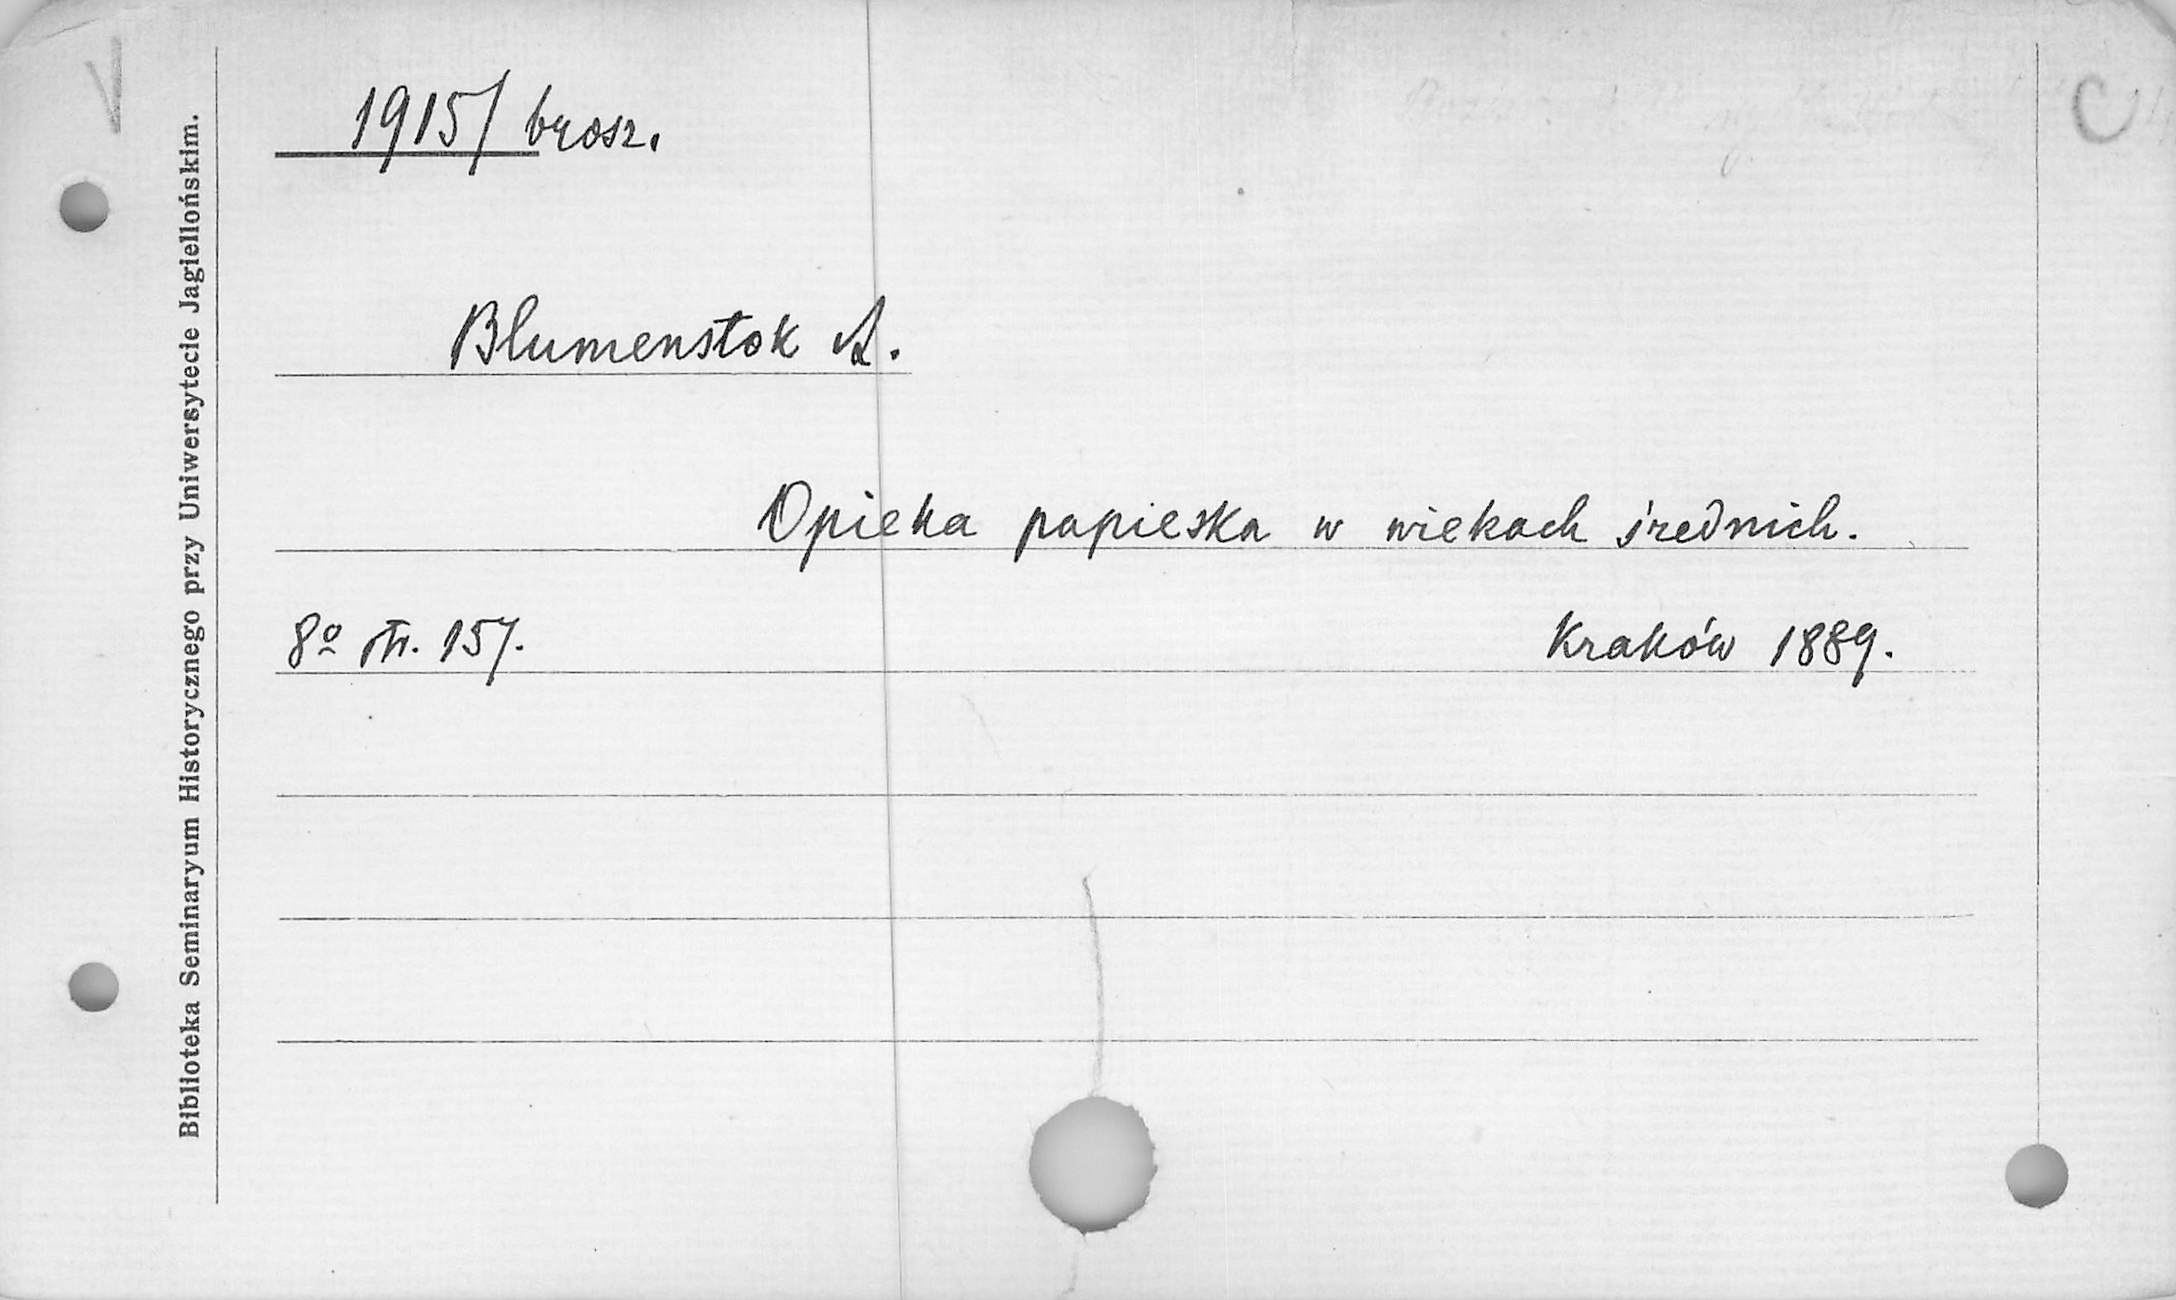 1915/ brosz.
Blumenstok A.
Opieka papieska w wiekach średnich.
8º str. 157. Kraków 1889.
Biblioteka Seminaryum Historycznego przy Uniwersytecie Jagiellońskim.